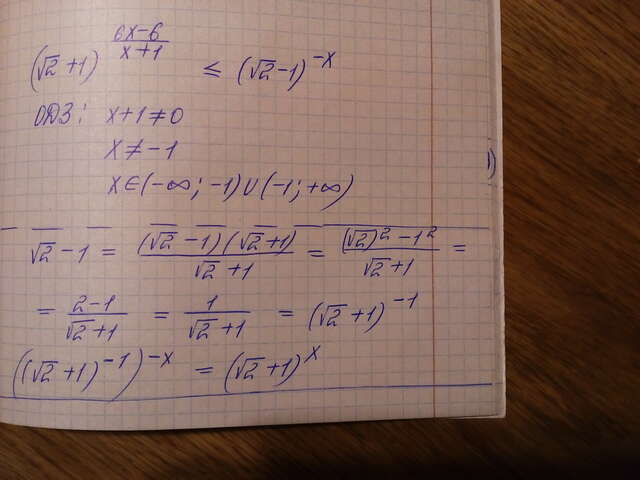 (√2+1)^((6x-6)/(x+1)) ≤ (√2-1)^(-x)
ОДЗ: x+1≠0
x≠-1
x∈(-∞;-1)∪(-1;+∞)
√2-1 = ((√2-1)(√2+1))/(√2+1) = ((√2)^2-1^2)/(√2+1) =
= (2-1)/(√2+1) = 1/(√2+1) = (√2+1)^(-1)
((√2+1)^(-1))^(-x) = (√2+1)^x